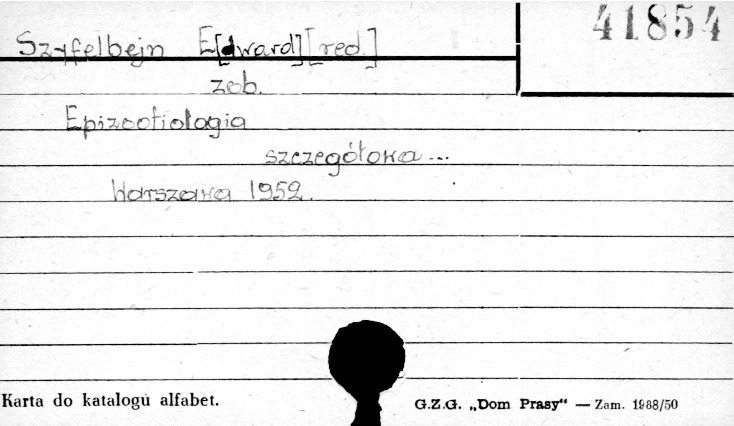 41854
Szyfelbejn E[dward][red.]
zob.
Epizootiologia
szczegółowa...
Warszawa 1952.
Karta do katalogu alfabet.
G.Z.G. „Dom Prasy“ — Zam. 1988/50